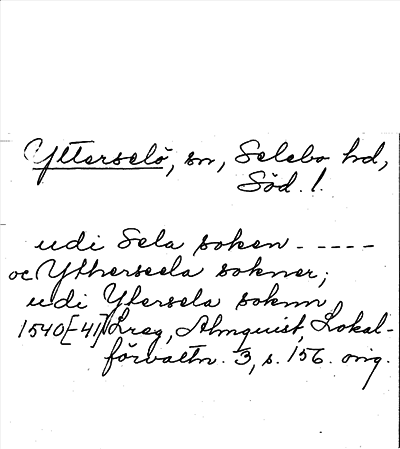 Ytterselö, sn, Selebo hd,
Söd. l.
udi Sela soken - - - - -
oc Ytherseela sokner;
udi Ytersela soknn
1540[-41] Lreg, Almquist, Lokal-
förvaltn. 3, s. 156. orig.